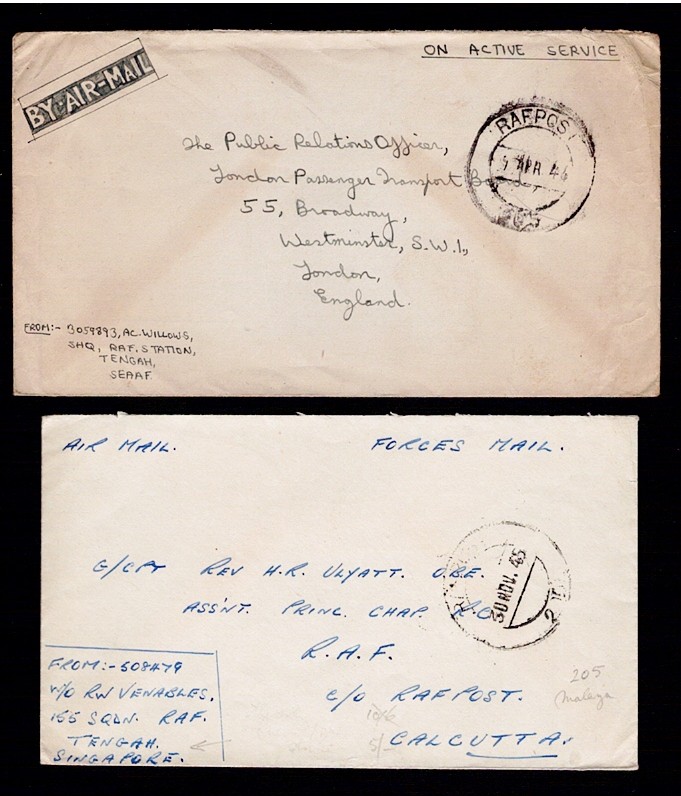 ON ACTIVE SERVICE
BY-AIR-MAIL
RAFPOST
APR
205
The Public Relations Officer,
London Passenger Transport
55, Broadway,
Westminster, S.W.1,
London,
England.
FROM:- 3059893, AC. WILLOWS,
SHQ, RAF. STATION,
TENGAH,
SEAAF.
AIR MAIL.
FORCES MAIL.
30 NOV. 45
G/CPT REV H.R. ULYATT. O.B.E.
ASS'NT. PRINC. CHAP.
R.A.F.
C/O RAFPOST.
CALCUTTA.
FROM:- 508479
W/O RW VENABLES.
155 SQDN. RAF.
TENGAH.
SINGAPORE.
205
Malaya
5/-